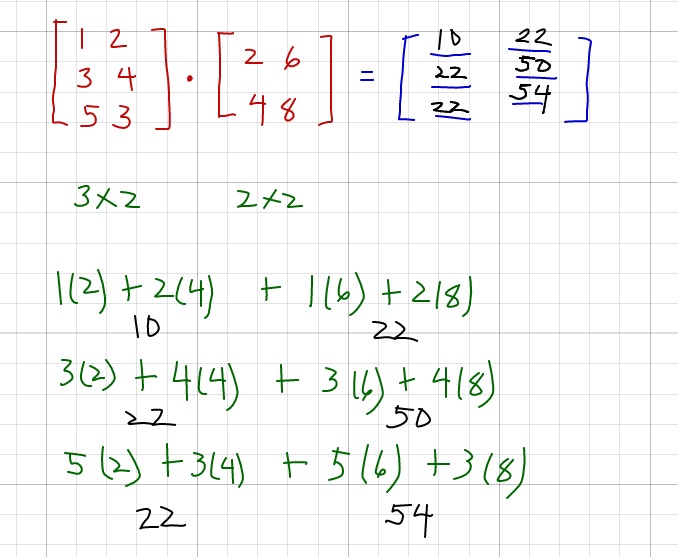 [1 2 [2 6 [10 22
3 4 · = 22 50
5 3] 4 8] 22 54]
3×2 2×2
1(2) + 2(4) + 1(6) + 2(8)
10 22
3(2) + 4(4) + 3(6) + 4(8)
22 50
5(2) + 3(4) + 5(6) + 3(8)
22 54